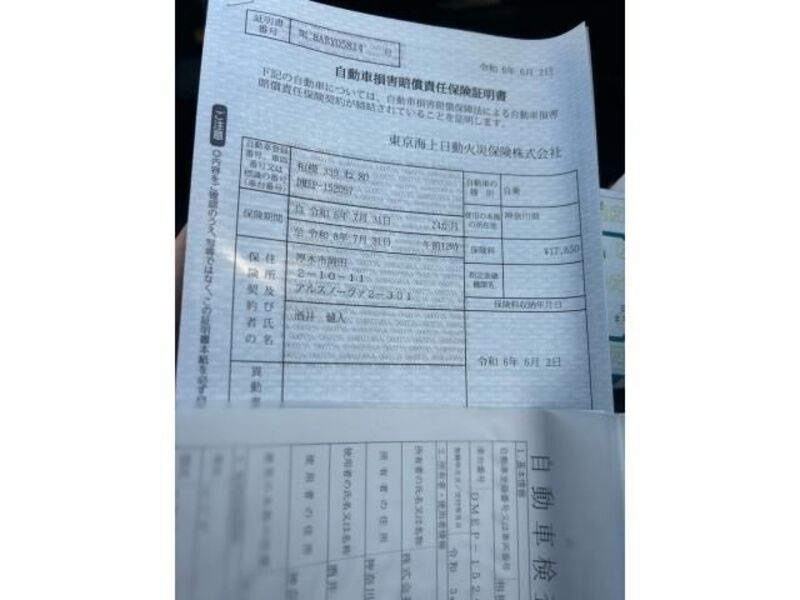 証明書
番号
令和 6年 6月 2日
自動車損害賠償責任保険証明書
下記の自動車については、自動車損害賠償保障法による自動車損害
賠償責任保険契約が締結されていることを証明します。
東京海上日動火災保険株式会社
ご注意
◎内容をご確認のうえ、写等ではなく、この証明書本紙を必ず
自動車登録
番号、車両
番号又は
標識の番号
(車台番号)
相模 339 ね 80
DMEP-152097
自動車の
種 別
自乗
保険期間
自 令和 6年 7月 31日
24か月
至 令和 8年 7月 31日
午前12時
使用の本拠
の所在地
神奈川県
保険料
¥17,650
保険料収納年月日
令和 6年 6月 2日
保険契約者の
住所及び氏名
厚木市岡田
2-10-11
アルスノーヴァ2-301
酒井 健人
異動
自動車検
1. 基本情報
自動車登録番号又は車両番号
相模
車台番号
DMEP-152
令和 3
2. 所有者・使用者情報
所有者の氏名又は名称
株式会
所有者の住所
神奈川
使用者の氏名又は名称
酒井
使用者の住所
神奈